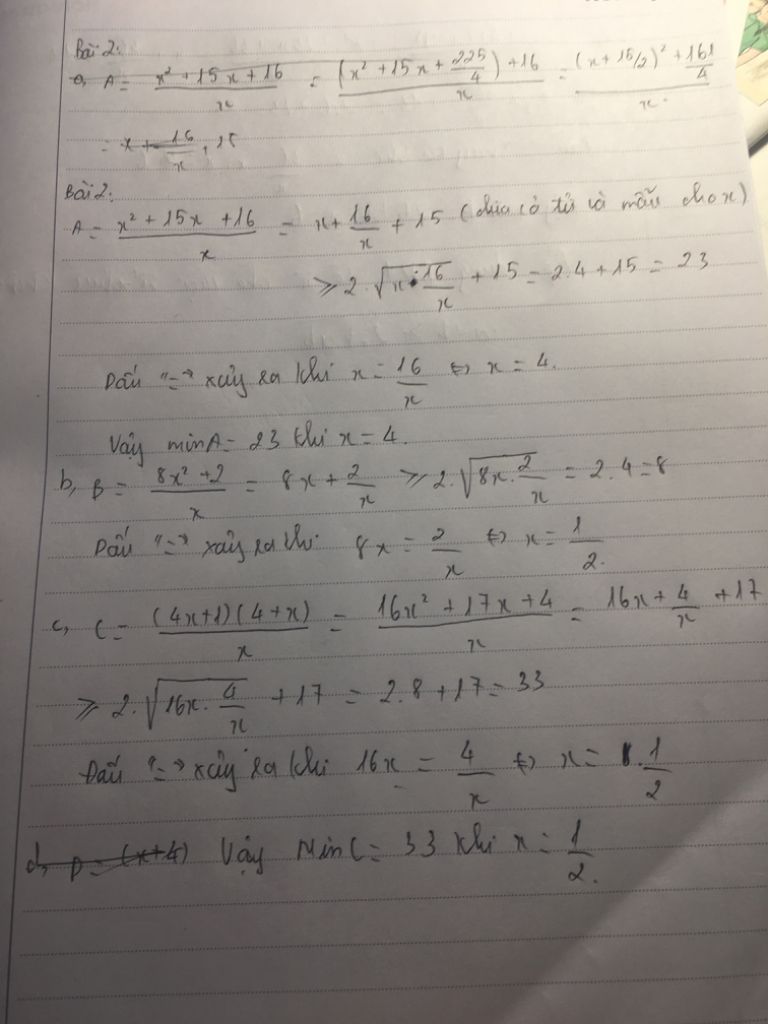 Bài 2:
a, A = \frac{x² + 15x + 16}{x} = \frac{(x² + 15x + \frac{225}{4}) + 16}{x} = \frac{(x + 15/2)² + \frac{161}{4}}{x}
= x + \frac{16}{x} + 15
Bài 2:
A = \frac{x² + 15x + 16}{x} = x + \frac{16}{x} + 15 (chia cả tử và mẫu cho x)
⩾ 2.\sqrt{x . \frac{16}{x}} + 15 = 2.4 + 15 = 23
Dấu "=" xảy ra khi x = \frac{16}{x} ⇔ x = 4.
Vậy min A = 23 khi x = 4.
b, B = \frac{8x² + 2}{x} = 8x + \frac{2}{x} ⩾ 2.\sqrt{8x . \frac{2}{x}} = 2.4 = 8
Dấu "=" xảy ra khi 8x = \frac{2}{x} ⇔ x = \frac{1}{2}.
c, C = \frac{(4x+1)(4+x)}{x} = \frac{16x² + 17x + 4}{x} = 16x + \frac{4}{x} + 17
⩾ 2.\sqrt{16x . \frac{4}{x}} + 17 = 2.8 + 17 = 33
Dấu "=" xảy ra khi 16x = \frac{4}{x} ⇔ x = \frac{1}{2}
d, D = (x+4) Vậy Min C = 33 khi x = \frac{1}{2}.